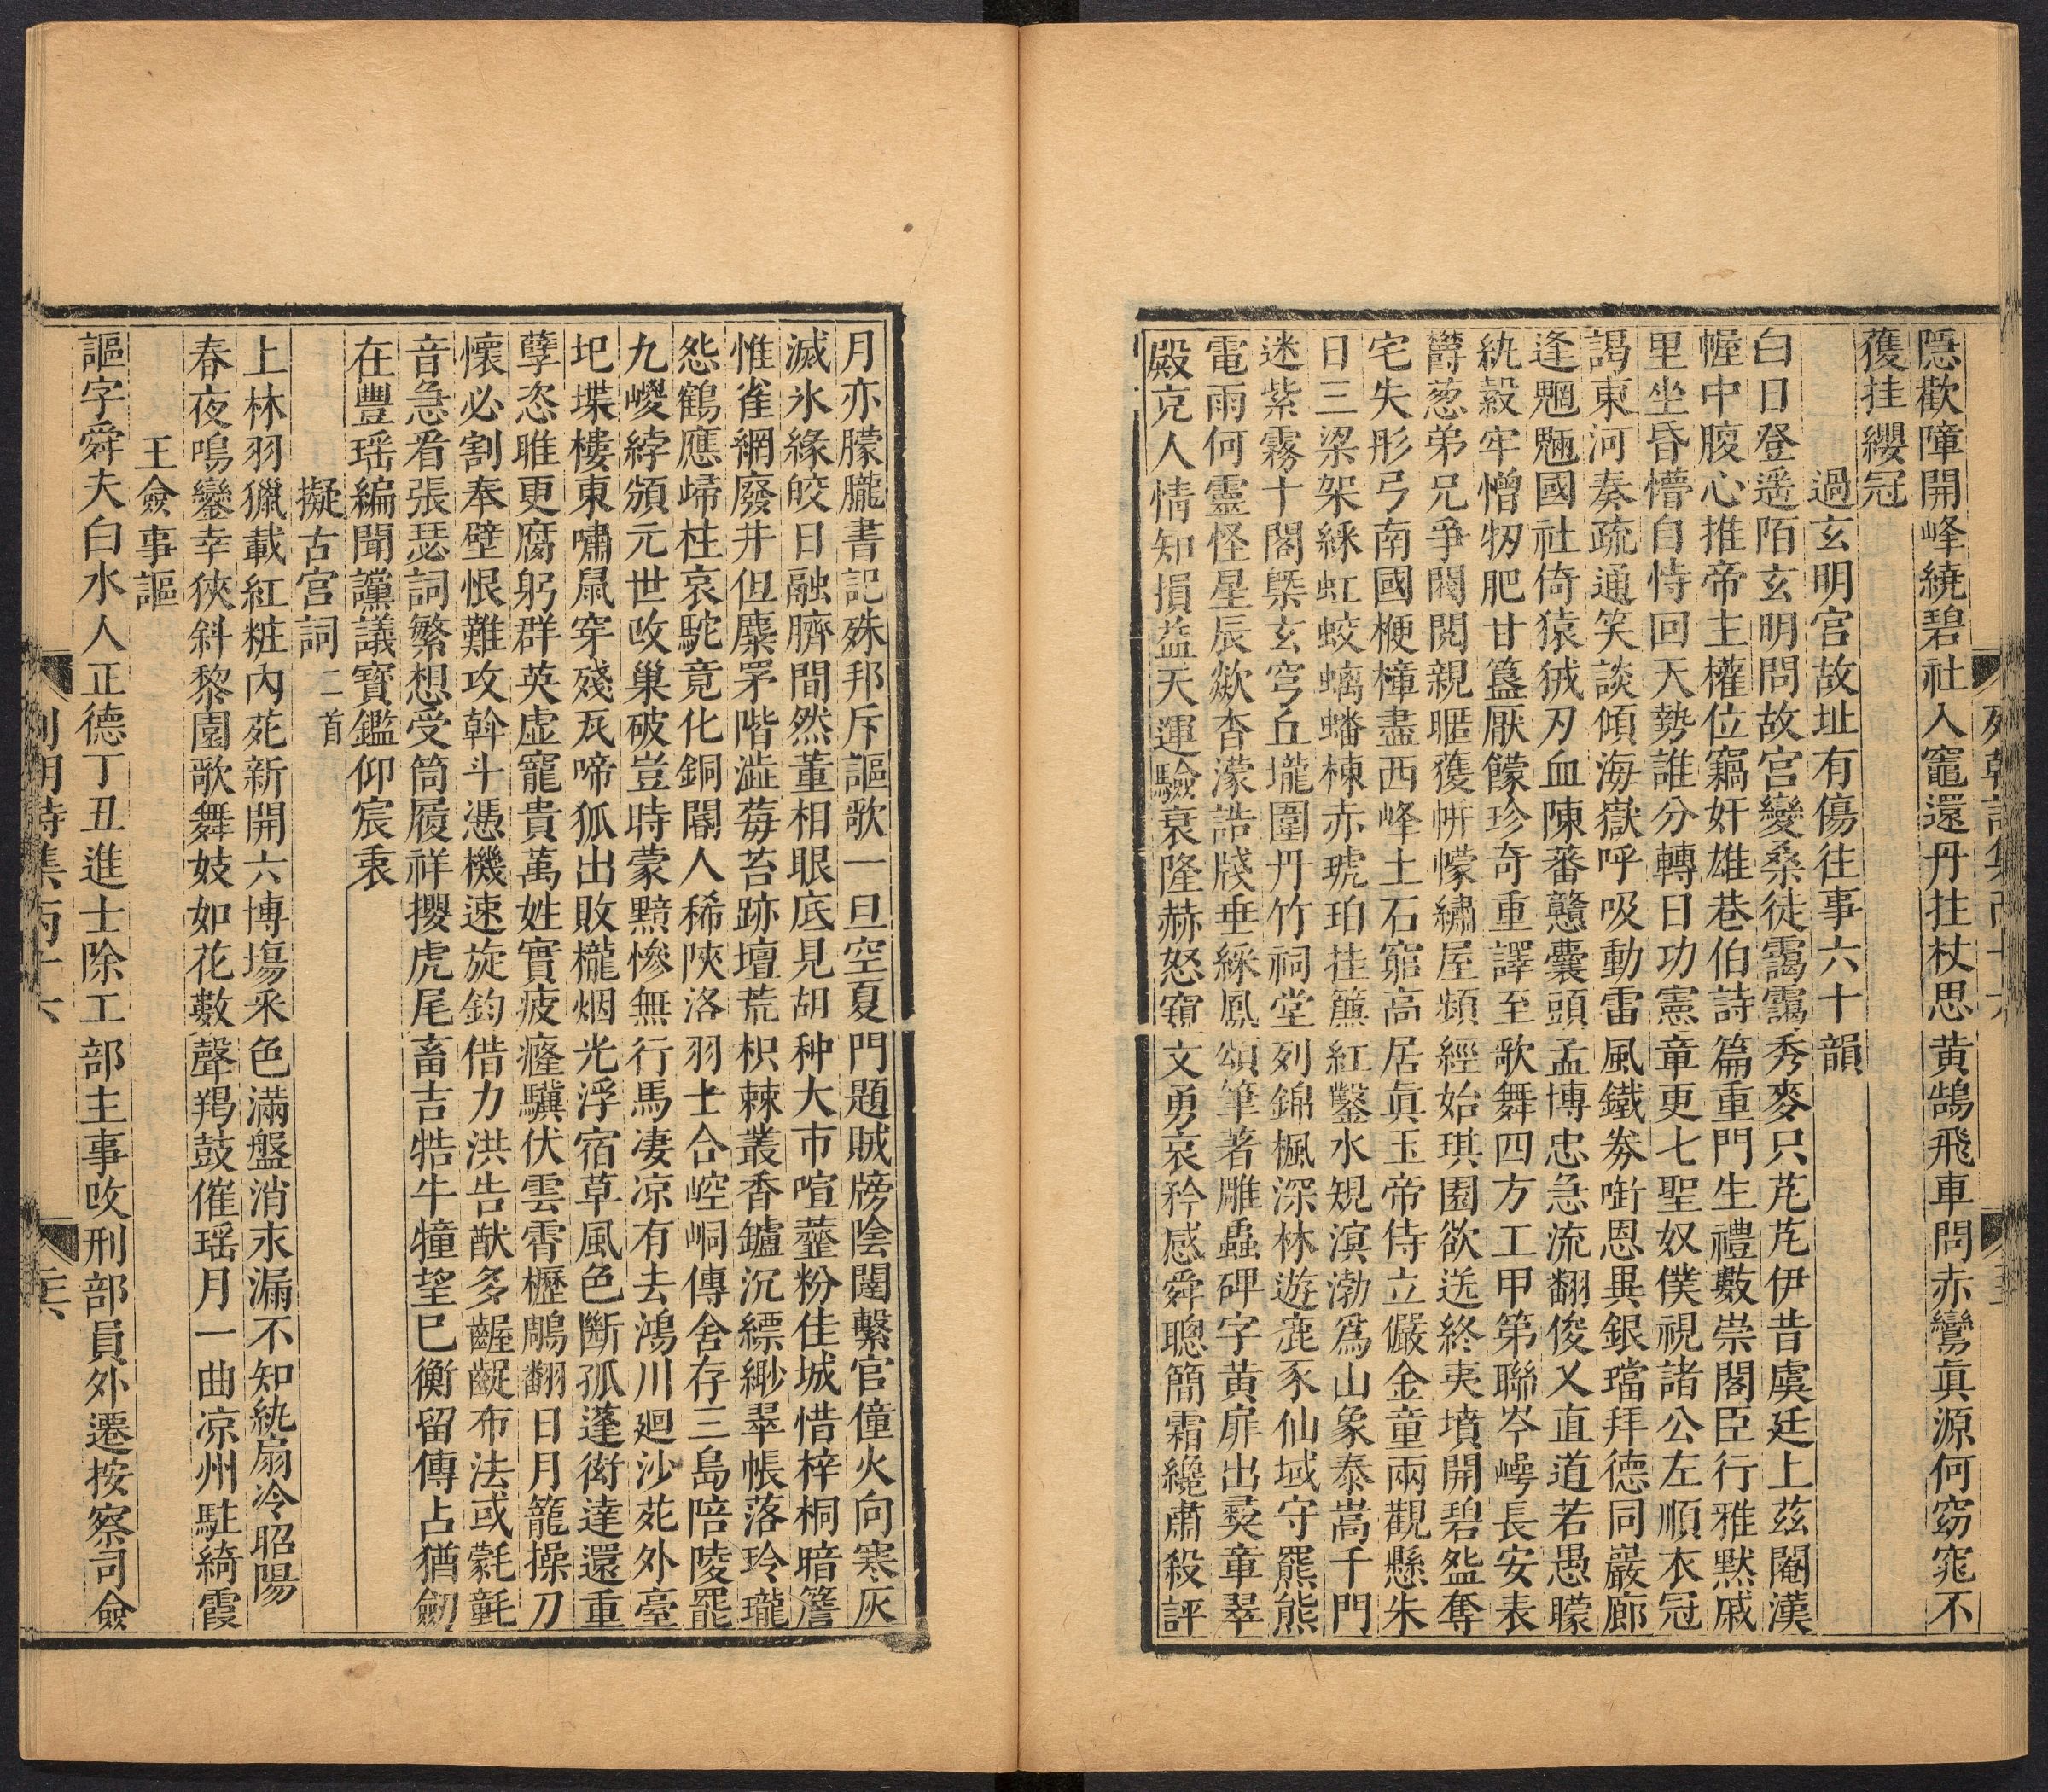 隱歡障開峰繞碧社入竈還丹拄杖思黃鵠飛車問赤鸞眞源何窈窕不
獲挂纓冠
過玄明宮故址有傷往事六十韻
白日登遥陌玄明問故宮變桑徒靄靄秀麥只芃芃伊昔虞廷上茲閹漢
幄中腹心推帝主權位竊奸雄巷伯詩篇重門生禮數崇閣臣行雅默戚
里坐昏懵自恃回天勢誰分轉日功憲章更七聖奴僕視諸公左順衣冠
謁東河奏疏通笑談傾海嶽呼吸動雷風鐵券㗸恩異銀璫拜德同巖廊
逢魍魎國社倚猿狨刃血陳蕃戇囊頭孟博忠急流翻俊乂直道若愚矇
紈縠牢憎牣肥甘簋厭饛珍奇重譯至歌舞四方工甲第聯岑嶀長安表
欝葱弟兄爭閥閱親暱獲帡幪繡屋頻經始琪園欲送終夷墳開碧盌奪
宅失彤弓南國梗橦盡西峰土石窮高居眞玉帝侍立儼金童兩觀懸朱
日三梁架綵虹蛟螭蟠棟赤琥珀挂簾紅鑿水規溟渤爲山象泰嵩千門
迷紫霧十閣槩玄穹丘壠圍丹竹祠堂列錦楓深林遊鹿豕仙域守羆熊
電雨何靈怪星辰歘杳濛誥牋垂綵鳳頌筆著雕蟲碑字黃扉出奏章翠
殿克人情知損益天運驗衰隆赫怒寶文勇哀矜感舜聰簡霜纔肅殺評
月亦朦朧書記殊邦斥謳歌一旦空夏門題賊牓陰闥繫官僮火向寒灰
滅氷緣皎日融臍間然董相眼底見胡种大市喧虀粉佳城惜梓桐暗簷
惟雀網廢井但麋罘階澁莓苔跡壇荒枳棘叢香鑪沉縹緲翠帳落玲瓏
怨鶴應歸柱哀駝竟化銅闈人稀陝洛羽士合崆峒傳舍存三島陪陵罷
九嵏綍頒元世改巢破豈時蒙黯慘無行馬凄凉有去鴻川廻沙苑外臺
圯堞樓東嘯鼠穿殘瓦啼狐出敗櫳烟光浮宿草風色斷孤蓬衖達還重
孽恣睢更腐躬群英虛寵貴萬姓實疲癃驥伏雲霄櫪鵰翻日月籠操刀
懷必割奉壁恨難攻斡斗憑機速旋鈞借力洪告猷多齷齪布法或氋氃
音急看張瑟詞繁想受筒履祥攖虎尾畜吉牿牛犝望已衡留傳占猶劒
在豐瑶編聞讜議寶鑑仰宸衷
擬古宮詞二首
上林羽獵載紅粧內苑新開六博塲釆色滿盤消永漏不知紈扇冷昭陽
春夜鳴鑾幸狹斜黎園歌舞妓如花數聲羯鼓催瑶月一曲凉州駐綺霞
王僉事謳
謳字舜夫白水人正德丁丑進士除工部主事改刑部員外遷按察司僉